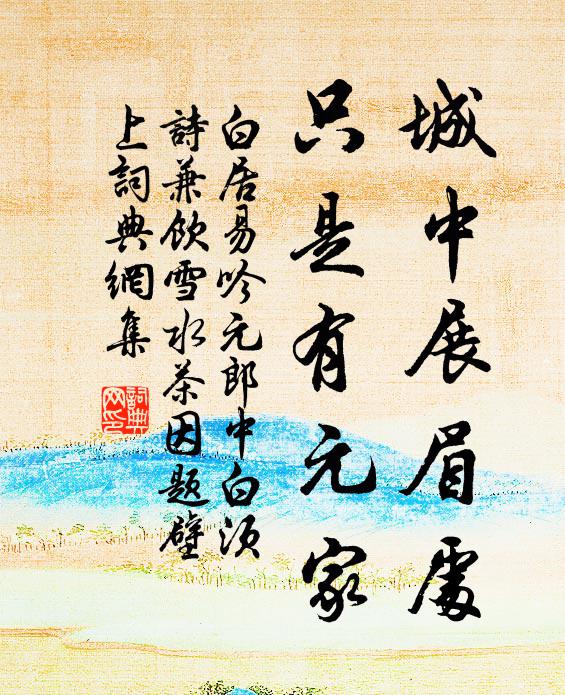 城中展眉處
只是有元家
白居易吟元郎中白須
詩兼飲雪水茶因題壁
上詞典網集
詞典網印